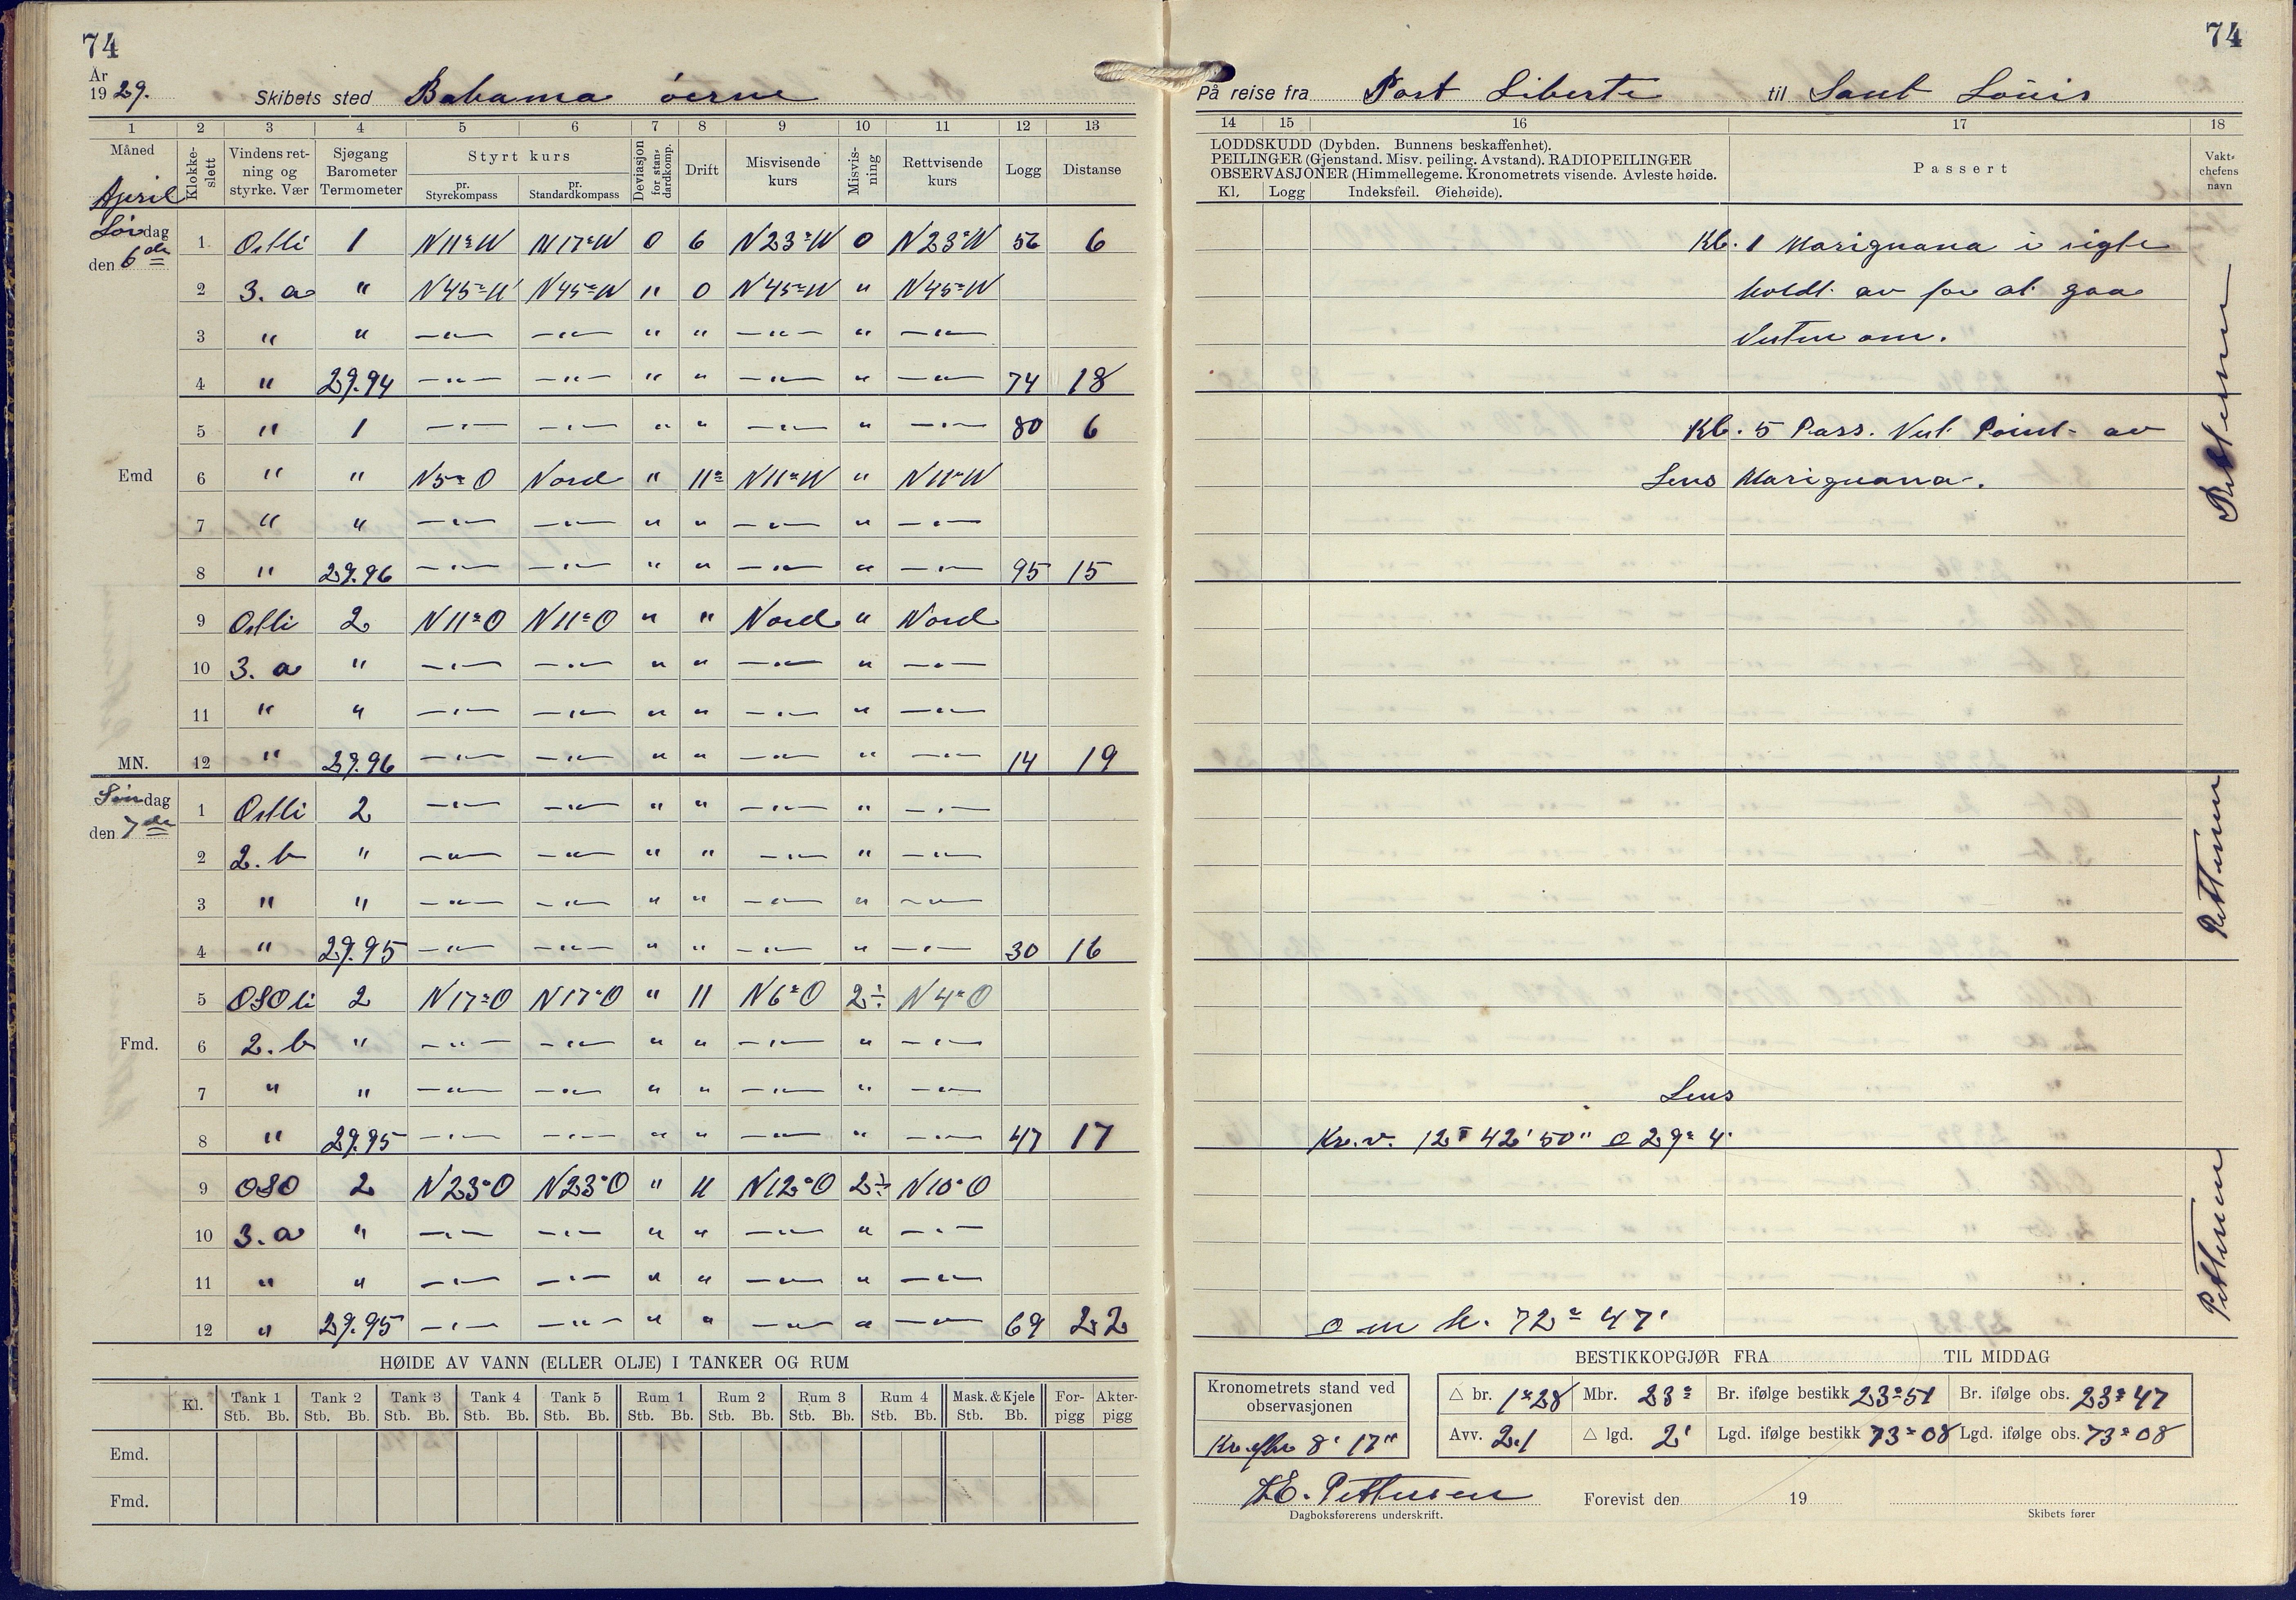 74
År
1929. Skibets sted Bahama øerne
1 2 3 4 5 6 7 8 9 10 11 12 13
Måned Klokke-slett Vindens ret-ning og styrke. Vær Sjøgang Barometer Termometer Styrt kurs pr. Styrekompass pr. Standardkompass Deviasjon for stan-dardkomp. Drift Misvisende kurs Misvis-ning Rettvisende kurs Logg Distanse
April
Lørdag
den 6de
1 Ostli 1 N11°W N17°W 0 6 N23°W 0 N23°W 56 6
2 3. a " N45°W N45°W " 0 N45°W " N45°W
3 " " —"— —"— " " —"— " —"—
4 " 29.94 —"— —"— " " —"— " —"— 74 18
5 " 1 —"— —"— " " —"— " —"— 80 6
Emd 6 " " N5°O Nord " 11° N11°W " N11°W
7 " " —"— —"— " " —"— " —"—
8 " 29.96 —"— —"— " " —"— " —"— 95 15
9 Ostli 2 N11°O N11°O " " Nord " Nord
10 3. a " —"— —"— " " —"— " —"—
11 " " —"— —"— " " —"— " —"—
MN. 12 " 29.96 —"— —"— " " —"— " —"— 14 19
Søndag
den 7de
1 Ostli 2 —"— —"— " " —"— " —"—
2 2. b " —"— —"— " " —"— " —"—
3 " " —"— —"— " " —"— " —"—
4 " 29.95 —"— —"— " " —"— " —"— 30 16
5 OSOli 2 N17°O N17°O " 11 N6°O 2÷ N4°O
Fmd. 6 2. b " —"— —"— " " —"— " —"—
7 " " —"— —"— " " —"— " —"—
8 " 29.95 —"— —"— " " —"— " —"— 47 17
9 OSO 2 N23°O N23°O " 11 N12°O 2÷ N10°O
10 3. a " —"— —"— " " —"— " —"—
11 " " —"— —"— " " —"— " —"—
12 " 29.95 —"— —"— " " —"— " —"— 69 22
HØIDE AV VANN (ELLER OLJE) I TANKER OG RUM
Kl. Tank 1 Tank 2 Tank 3 Tank 4 Tank 5 Rum 1 Rum 2 Rum 3 Rum 4 Mask. & Kjele For-pigg Akter-pigg
Stb. Bb. Stb. Bb. Stb. Bb. Stb. Bb. Stb. Bb. Stb. Bb. Stb. Bb. Stb. Bb. Stb. Bb. Stb. Bb.
Emd.
Fmd.
74
På reise fra Port Liberte til Sant Louis
14 15 16 17 18
LODDSKUDD (Dybden. Bunnens beskaffenhet).
PEILINGER (Gjenstand. Misv. peiling. Avstand). RADIOPEILINGER
OBSERVASJONER (Himmellegeme. Kronometrets visende. Avleste høide.
Kl. Logg Indeksfeil. Øiehøide).
Passert
Vakt-chefens navn
Kl. 1 Mariguana i sigte
holdt av for at gaa
Vesten om.
Kl. 5 Pass. Vest Point av
Lens Mariguana.
Pettersen
Pettersen
Lens
Kr.v. 12T 42' 50" o 29° 4'
Pettersen
o m h. 72° 47'
BESTIKKOPGJØR FRA TIL MIDDAG
Kronometrets stand ved observasjonen
Kr. efter 8' 17"
△ br. 1°28 Mbr. 23° Br. ifølge bestikk 23°51 Br. ifølge obs. 23°47
Avv. 2.1 △ lgd. 2' Lgd. ifølge bestikk 73°08 Lgd. ifølge obs. 73°08
Pettersen
Dagboksførerens underskrift.
Forevist den 19
Skibets fører